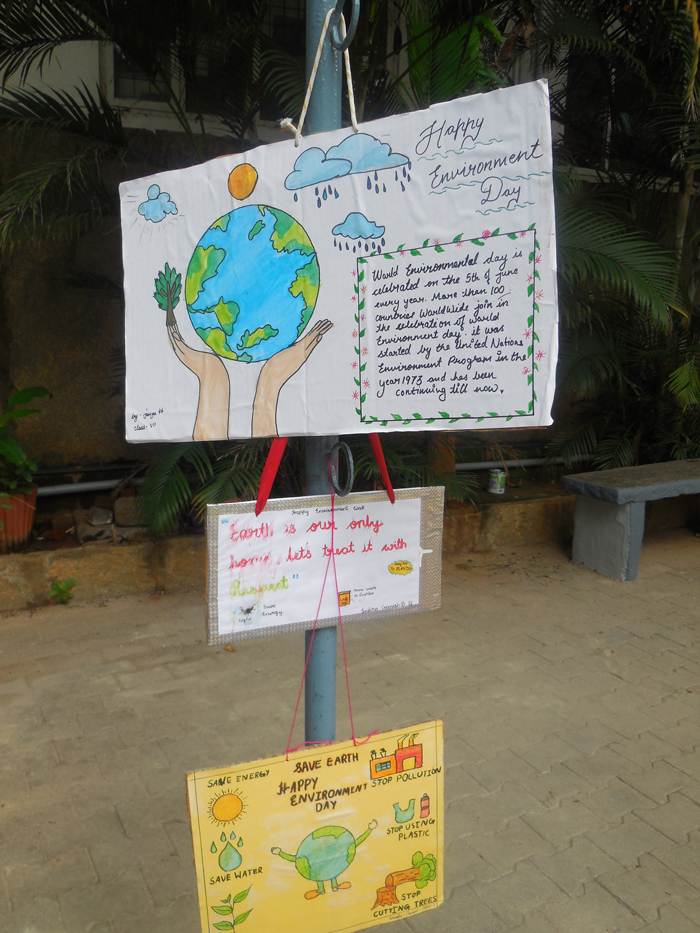 Happy
Environment
Day
World Environmental day is
celebrated on the 5th of june
every year. More than 100
countries WorldWide join in
the celebration of world
Environment day. it was
started by the United Nations
Environment Program in the
year 1973 and has been
continuing till now.
by:-
Class- VII
Happy Environment
Earth is our only
home, let's treat it with
Respect"
Save
Energy
SAVE EARTH
HAPPY
ENVIRONMENT
DAY
SAVE ENERGY
STOP POLLUTION
SAVE WATER
STOP USING
PLASTIC
STOP
CUTTING TREES